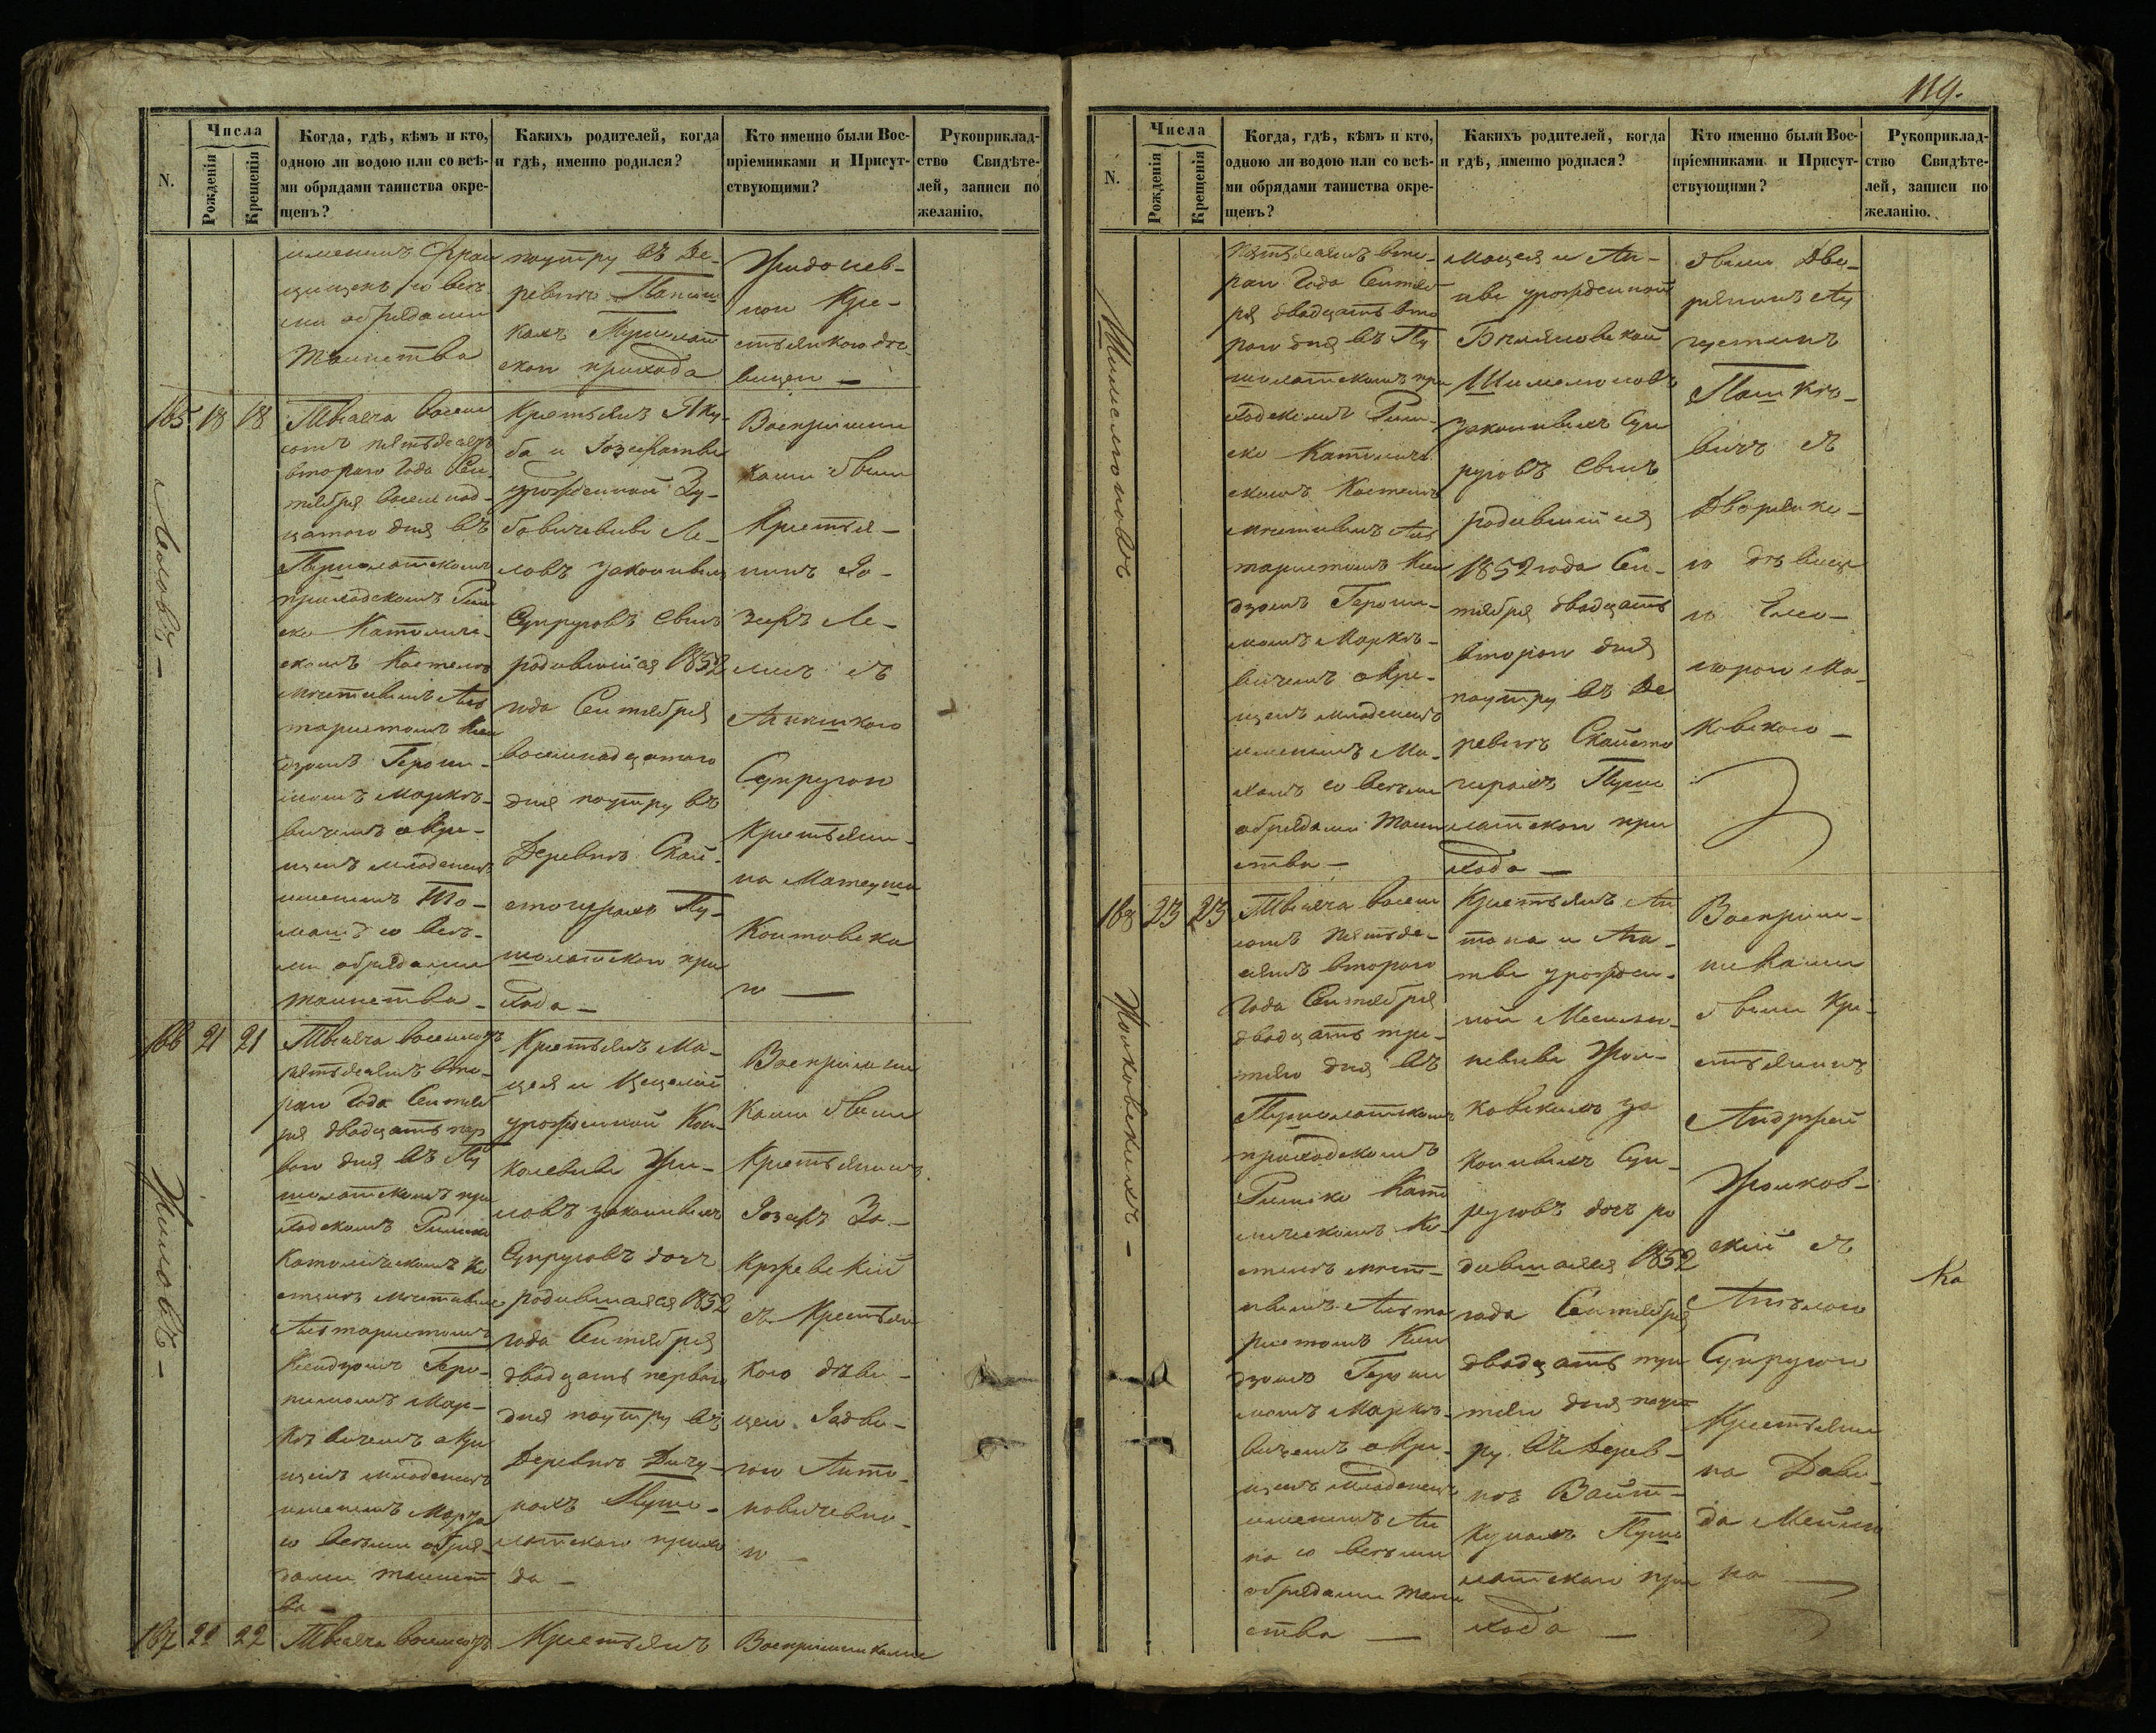 119.
N.
Числа
Рожденія
Крещенія
Когда, гдѣ, кѣмъ и кто,
одною ли водою или со всѣ-
ми обрядами таинства окре-
щенъ?
Какихъ родителей, когда
и гдѣ, именно родился?
Кто именно были Вос-
пріемниками и Присут-
ствующими?
Рукоприклад-
ство Свидѣте-
лей, записи по
желанію.
именемъ Фран
цишекъ со всѣ-
ми обрядами
Таинства
поутру въ Де-
ревнѣ
Пушолат
скаго прихода
кою Кре-
стьянкою дѣ-
вицею —
185 18 18
Тысяча восемь
сотъ пятьдесятъ
втораго Года Сен
тября восемнад-
цатаго дня въ
Пушолатскомъ
приходскомъ Рим
ско Католиче-
скомъ Костелѣ
мѣстнымъ Ал
таристомъ Ксен
дзомъ Герони-
момъ Маркѣ-
вичемъ окре-
щенъ младенецъ
именемъ То-
машъ со всѣ-
ми обрядами
таинства —
Крестьянъ Яку-
ба и Іозефаты
урожденной
законныхъ
Супруговъ сынъ
родившійся 1852
года Сентября
восемнадцатаго
дня поутру въ
Деревнѣ Скай-
стогирахъ Пу-
шолатскаго при
хода —
Воспріемни
ками были
Крестья-
нинъ Іо-
зефъ Ле-
лисъ съ
Супругою
Крестьяни-
на Матеуша
Контовска
го —
186 21 21
Тысяча восемьсотъ
пятьдесятъ вто-
раго Года Сентяб
ря двадцать пер
ваго дня въ Пу
шолатскомъ при
ходскомъ Римско
Католическомъ Ко
стелѣ мѣстнымъ
Алтаристомъ
Ксендзомъ Геро-
нимомъ Мар-
кѣвичемъ окре
щенъ младенецъ
именемъ
со всѣми обря-
дами таинст
ва —
Крестьянъ Ма-
цея и Цециліи
урожденной
законныхъ
Супруговъ дочь
родившаяся 1852
года Сентября
двадцать перваго
дня поутру въ
Деревнѣ
Пушо-
латскаго прихо
да —
Воспріемни
ками были
Крестьянинъ
Іозефъ За-
кржевскій
съ Крестьян
кою дѣви-
цею Ядви-
гою Анто-
новичевно-
ю —
187 22 22
Тысяча восемьсотъ
Крестьянъ
Воспріемниками
N.
Числа
Рожденія
Крещенія
Когда, гдѣ, кѣмъ и кто,
одною ли водою или со всѣ-
ми обрядами таинства окре-
щенъ?
Какихъ родителей, когда
и гдѣ, именно родился?
Кто именно были Вос-
пріемниками и Присут-
ствующими?
Рукоприклад-
ство Свидѣте-
лей, записи по
желанію.
пятьдесятъ вто-
раго Года Сентяб
ря двадцать вто
раго дня въ Пу
шолатскомъ при
ходскомъ Рим-
ско Католиче
скомъ Костелѣ
мѣстнымъ Ал
таристомъ Ксен
дзомъ Герони-
момъ Маркѣ-
вичемъ окре-
щенъ младенецъ
именемъ
со всѣми
обрядами таин
ства —
Мацея и Ан-
ны урожденной
законныхъ Суп
руговъ сынъ
родившійся
1852 года Сен-
тября двадцать
втораго дня
поутру въ Де
ревнѣ Скайсто
гирахъ Пушо
латскаго при
хода —
были Дво-
рянинъ Ав
густинъ
Пашкѣ-
вичъ съ
Дворянко-
ю дѣвице
ю Ма-
ковскою —
188 23 23
Тысяча восемь
сотъ пятьде-
сятъ втораго
Года Сентября
двадцать тре-
тяго дня въ
Пушолатскомъ
приходскомъ
Римско Като
лическомъ Ко-
стелѣ мѣст-
нымъ Алта
ристомъ Ксен
дзомъ Герони
момъ Маркѣ-
вичемъ окре-
щенъ младенецъ
именемъ Ан
на со всѣми
обрядами таин
ства —
Крестьянъ Ан
тона и Ага-
ты урожден-
ной
за
конныхъ Суп-
руговъ дочь ро
дившаяся 1852
года Сентября
двадцать тре
тяго дня поут
ру въ Дерев-
нѣ Войт-
кунахъ Пушо
латскаго при
хода —
Воспріем-
никами
были Кре-
стьянинъ
Андржей
Жолков-
скій съ
Супругою
Крестьяни
на Дави-
да
на —
Ка